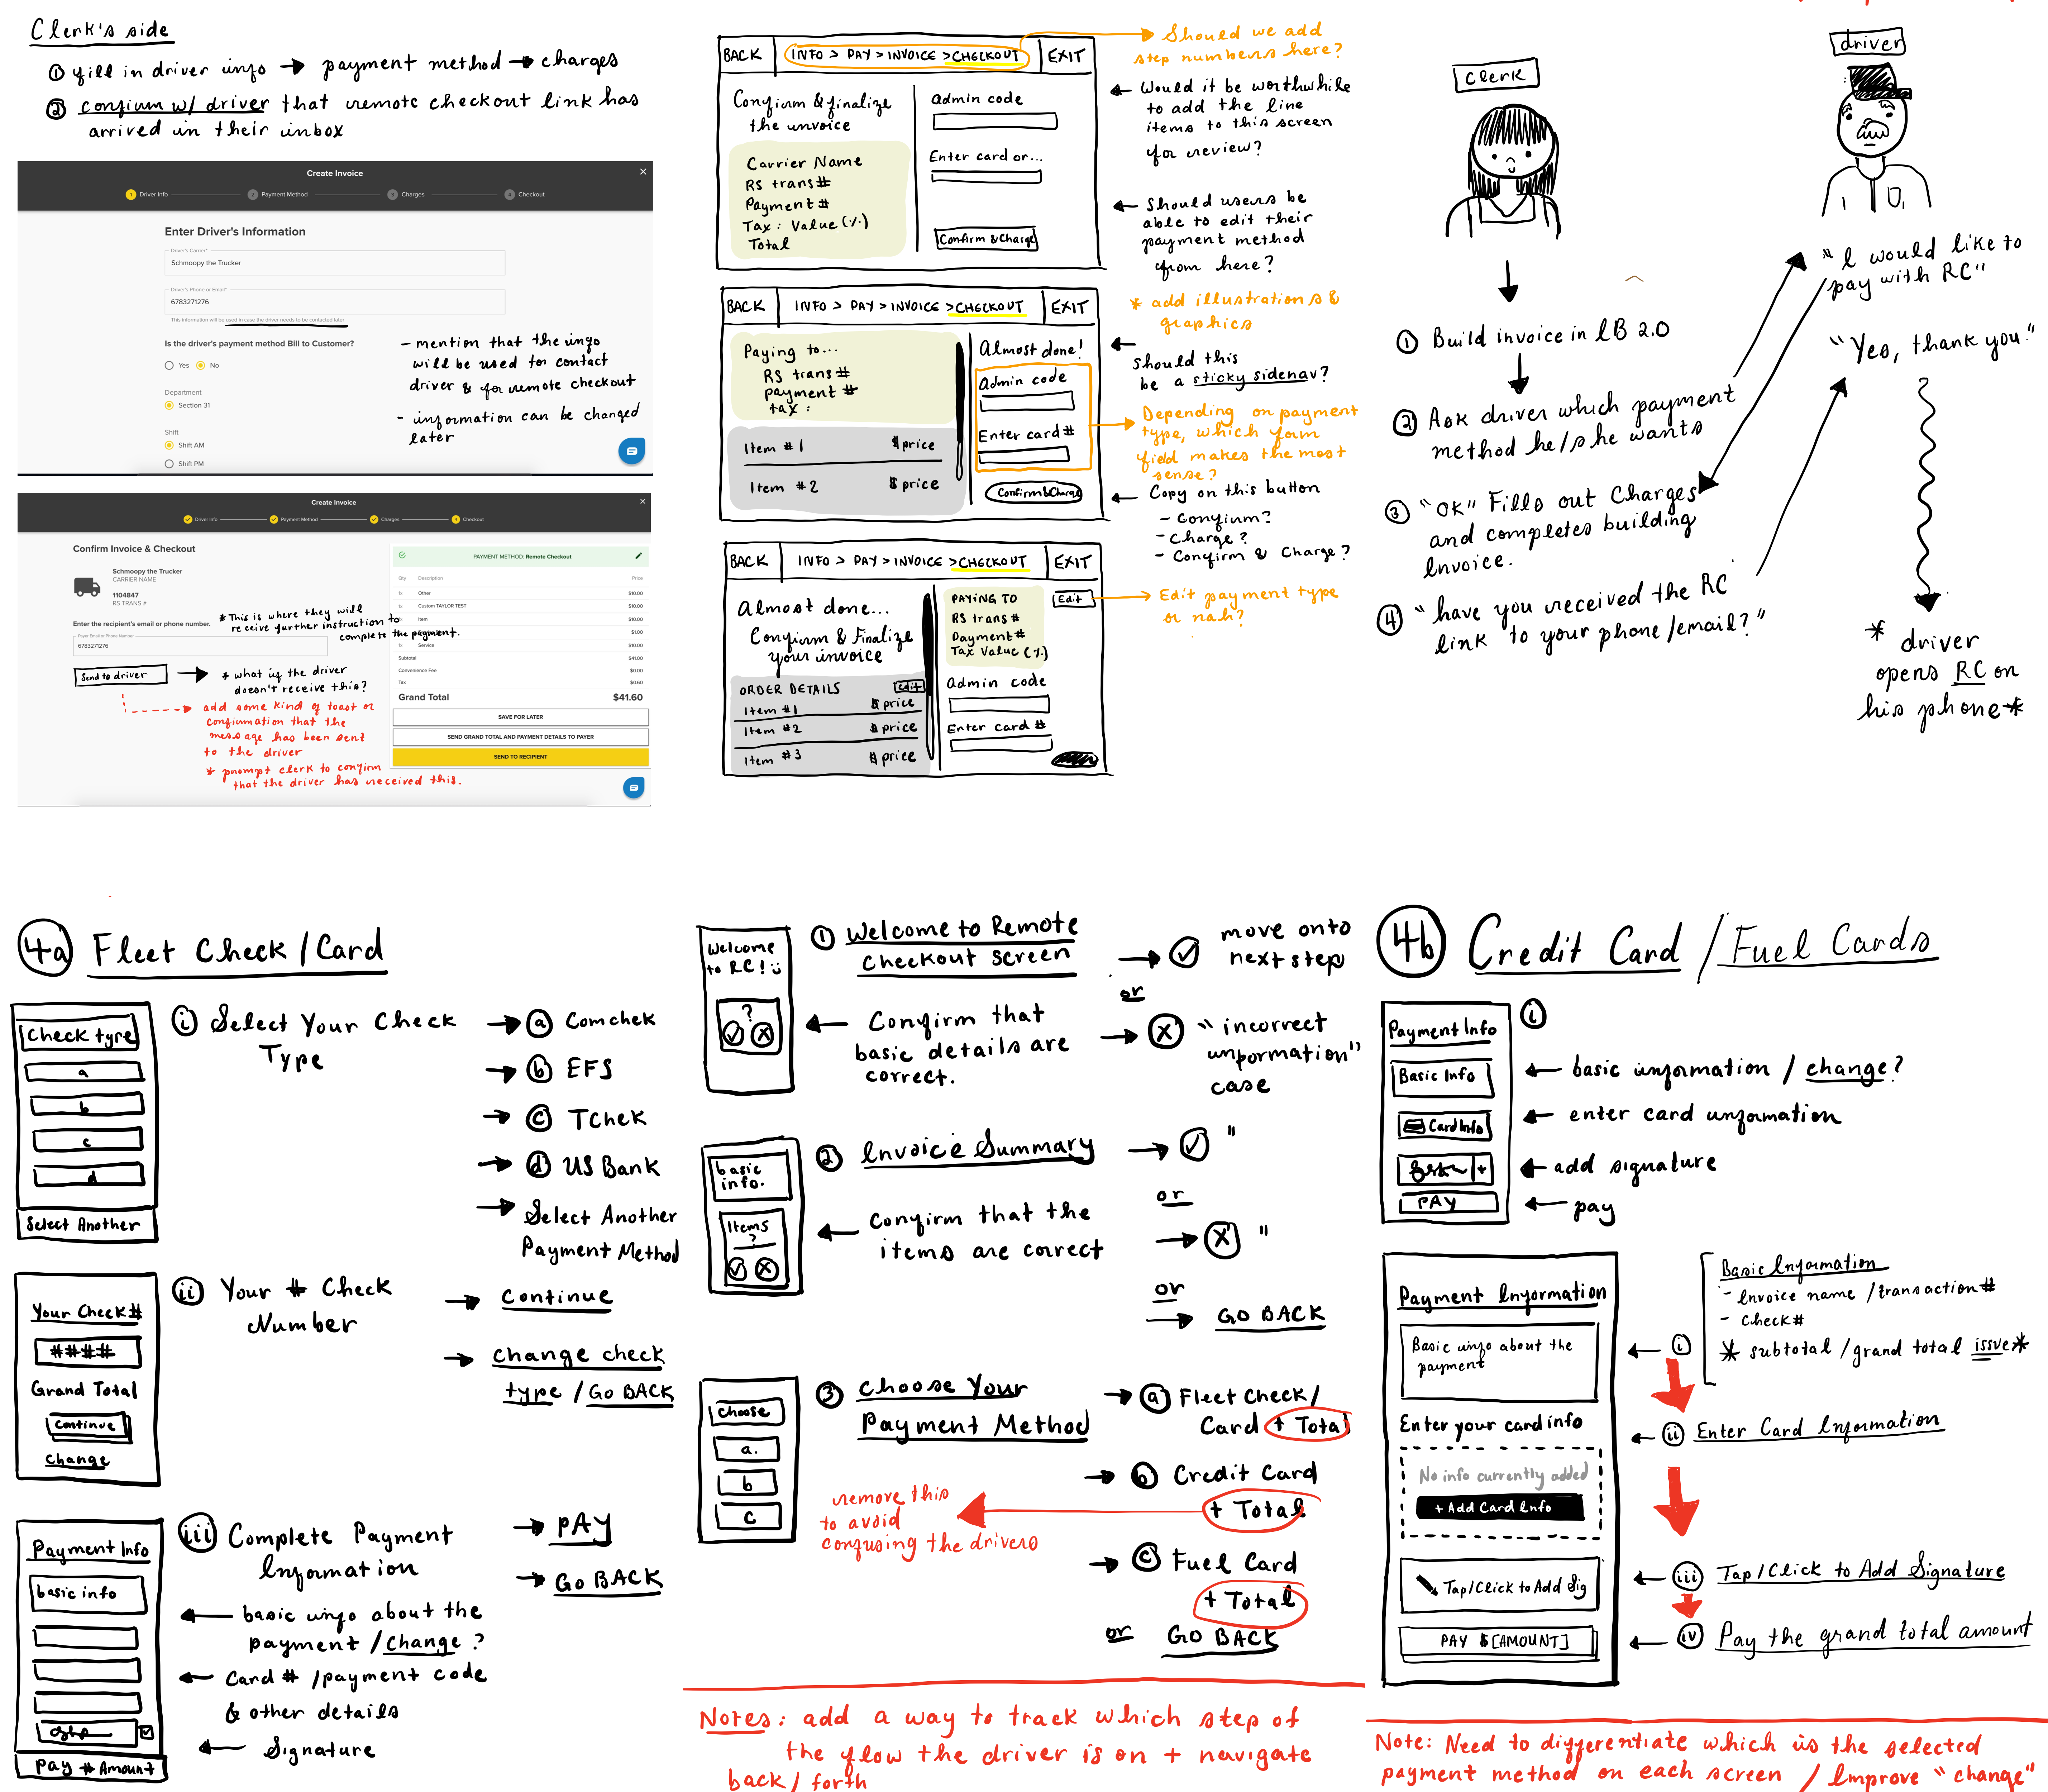 Clerk's side
① fill in driver info → payment method → charges
② confirm w/ driver that remote checkout link has
arrived in their inbox
Create Invoice
1 Driver Info
2 Payment Method
3 Charges
4 Checkout
Enter Driver's Information
Driver's Carrier*
Schmoopy the Trucker
Driver's Phone or Email*
6783271276
This information will be used in case the driver needs to be contacted later.
Is the driver's payment method Bill to Customer?
Yes No
Department
Section 31
Shift
Shift AM
Shift PM
- mention that the info
will be used to contact
driver & for remote checkout
- information can be changed
later
Create Invoice
Driver Info
Payment Method
Charges
4 Checkout
Confirm Invoice & Checkout
Schmoopy the Trucker
CARRIER NAME
1104847
RS TRANS #
* This is where they will
receive further instruction to
complete the payment.
Enter the recipient's email or phone number.
Payer Email or Phone Number
6783271276
Send to driver → * what if the driver
doesn't receive this?
add some kind of toast or
confirmation that the
message has been sent
to the driver
* prompt clerk to confirm
that the driver has received this.
PAYMENT METHOD: Remote Checkout
Qty Description Price
1x Other $10.00
1x Custom TAYLOR TEST $10.00
Item $10.00
$1.00
1x Service $10.00
Subtotal $41.00
Convenience Fee $0.00
Tax $0.60
Grand Total $41.60
SAVE FOR LATER
SEND GRAND TOTAL AND PAYMENT DETAILS TO PAYER
SEND TO RECIPIENT
BACK INFO > PAY > INVOICE > CHECKOUT EXIT
Confirm & finalize
the invoice
Carrier Name
RS trans #
Payment #
Tax: Value (%)
Total
Admin code
Enter card or...
Confirm & Charge
Should we add
step numbers here?
Would it be worthwhile
to add the line
items to this screen
for review?
Should users be
able to edit their
payment method
from here?
* add illustrations &
graphics
BACK INFO > PAY > INVOICE > CHECKOUT EXIT
Paying to...
RS trans #
payment #
tax:
Item #1 $price
Item #2 $price
Almost done!
Admin code
Enter card #
Confirm & Charge
should this
be a sticky sidenav?
Depending on payment
type, which form
field makes the most
sense?
Copy on this button
- Confirm?
- Charge?
- Confirm & Charge?
BACK INFO > PAY > INVOICE > CHECKOUT EXIT
Almost done...
Confirm & Finalize
your invoice
ORDER DETAILS Edit
Item #1 $price
Item #2 $price
Item #3 $price
PAYING TO Edit
RS trans #
Payment #
Tax Value (%)
Admin code
Enter card #
Edit payment type
or nah?
clerk
driver
① Build invoice in IB 2.0
② Ask driver which payment
method he/she wants
③ "OK" Fills out Charges
and completes building
Invoice.
④ "have you received the RC
link to your phone/email?"
"I would like to
pay with RC"
"Yes, thank you."
* driver
opens RC on
his phone*
4a Fleet Check/Card
Check type
a
b
c
d
Select Another
i Select Your Check
Type
→ a Comchek
→ b EFS
→ c TChek
→ d US Bank
→ Select Another
Payment Method
Your Check #
####
Grand Total
Continue
change
ii Your # Check
Number
→ continue
→ change check
type / Go BACK
Payment Info
basic info
Pay # Amount
iii Complete Payment
Information
→ PAY
→ Go BACK
← basic info about the
payment / change?
← Card # /payment code
& other details
← Signature
Welcome
to RC!
?
① Welcome to Remote
Checkout Screen
← Confirm that
basic details are
correct.
→ ✓ move onto
next step
or
→ X "incorrect
information"
case
basic
info.
Items
?
② Invoice Summary → ✓ "
or
← Confirm that the
items are correct
→ X "
or
→ GO BACK
choose
a.
b
c
③ Choose Your
Payment Method
→ a Fleet Check/
Card + Total
→ b Credit Card
+ Total
→ c Fuel Card
+ Total
or GO BACK
remove this
to avoid
confusing the drivers
Notes: add a way to track which step of
the flow the driver is on + navigate
back/forth
4b Credit Card / Fuel Cards
Payment Info
Basic Info
Card Info
PAY
i
← basic information / change?
← enter card information
← add signature
← pay
Payment Information
Basic info about the
payment
Enter your card info
No info currently added
+ Add Card Info
Tap/Click to Add Sig
PAY $[AMOUNT]
Basic Information
- Invoice name /transaction #
- check #
* subtotal /grand total issue*
← i
← ii Enter Card Information
← iii Tap/Click to Add Signature
← iv Pay the grand total amount
Note: Need to differentiate which is the selected
payment method on each screen / Improve "change"